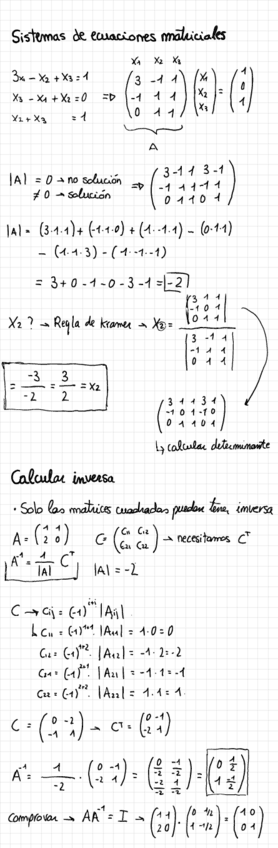 Sistemas de ecuaciones matriciales
x₁ x₂ x₃
3x₁ - x₂ + x₃ = 1
x₃ - x₁ + x₂ = 0 => (3 -1 1; -1 1 1; 0 1 1) (x₁; x₂; x₃) = (1; 0; 1)
x₂ + x₃ = 1
A
|A| = 0 → no solución
≠ 0 → solución => (3 -1 1 3 -1; -1 1 1 -1 1; 0 1 1 0 1)
|A| = (3·1·1) + (-1·1·0) + (1·-1·1) - (0·1·1)
- (1·1·3) - (1·-1·-1)
= 3 + 0 - 1 - 0 - 3 - 1 = -2
x₂ ? → Regla de kramer → x₂ = |3 1 1; -1 0 1; 0 1 1| / |3 -1 1; -1 1 1; 0 1 1|
= -3/-2 = 3/2 = x₂
(3 1 1 3 1; -1 0 1 -1 0; 0 1 1 0 1)
↳ calcular determinante
Calcular inversa
· Solo las matrices cuadradas pueden tener inversa
A = (1 1; 2 0) C = (C₁₁ C₁₂; C₂₁ C₂₂) → necesitamos Cᵀ
A⁻¹ = 1/|A| Cᵀ |A| = -2
C → Cij = (-1)ⁱ⁺ʲ |Aij|
↳ C₁₁ = (-1)¹⁺¹ · |A₁₁| = 1·0 = 0
C₁₂ = (-1)¹⁺² · |A₁₂| = -1·2 = -2
C₂₁ = (-1)²⁺¹ · |A₂₁| = -1·1 = -1
C₂₂ = (-1)²⁺² · |A₂₂| = 1·1 = 1
C = (0 -2; -1 1) → Cᵀ = (0 -1; -2 1)
A⁻¹ = 1/-2 · (0 -1; -2 1) = (0/-2 -1/-2; -2/-2 1/-2) = (0 1/2; 1 -1/2)
comprovar → AA⁻¹ = I → (1 1; 2 0) · (0 1/2; 1 -1/2) = (1 0; 0 1)